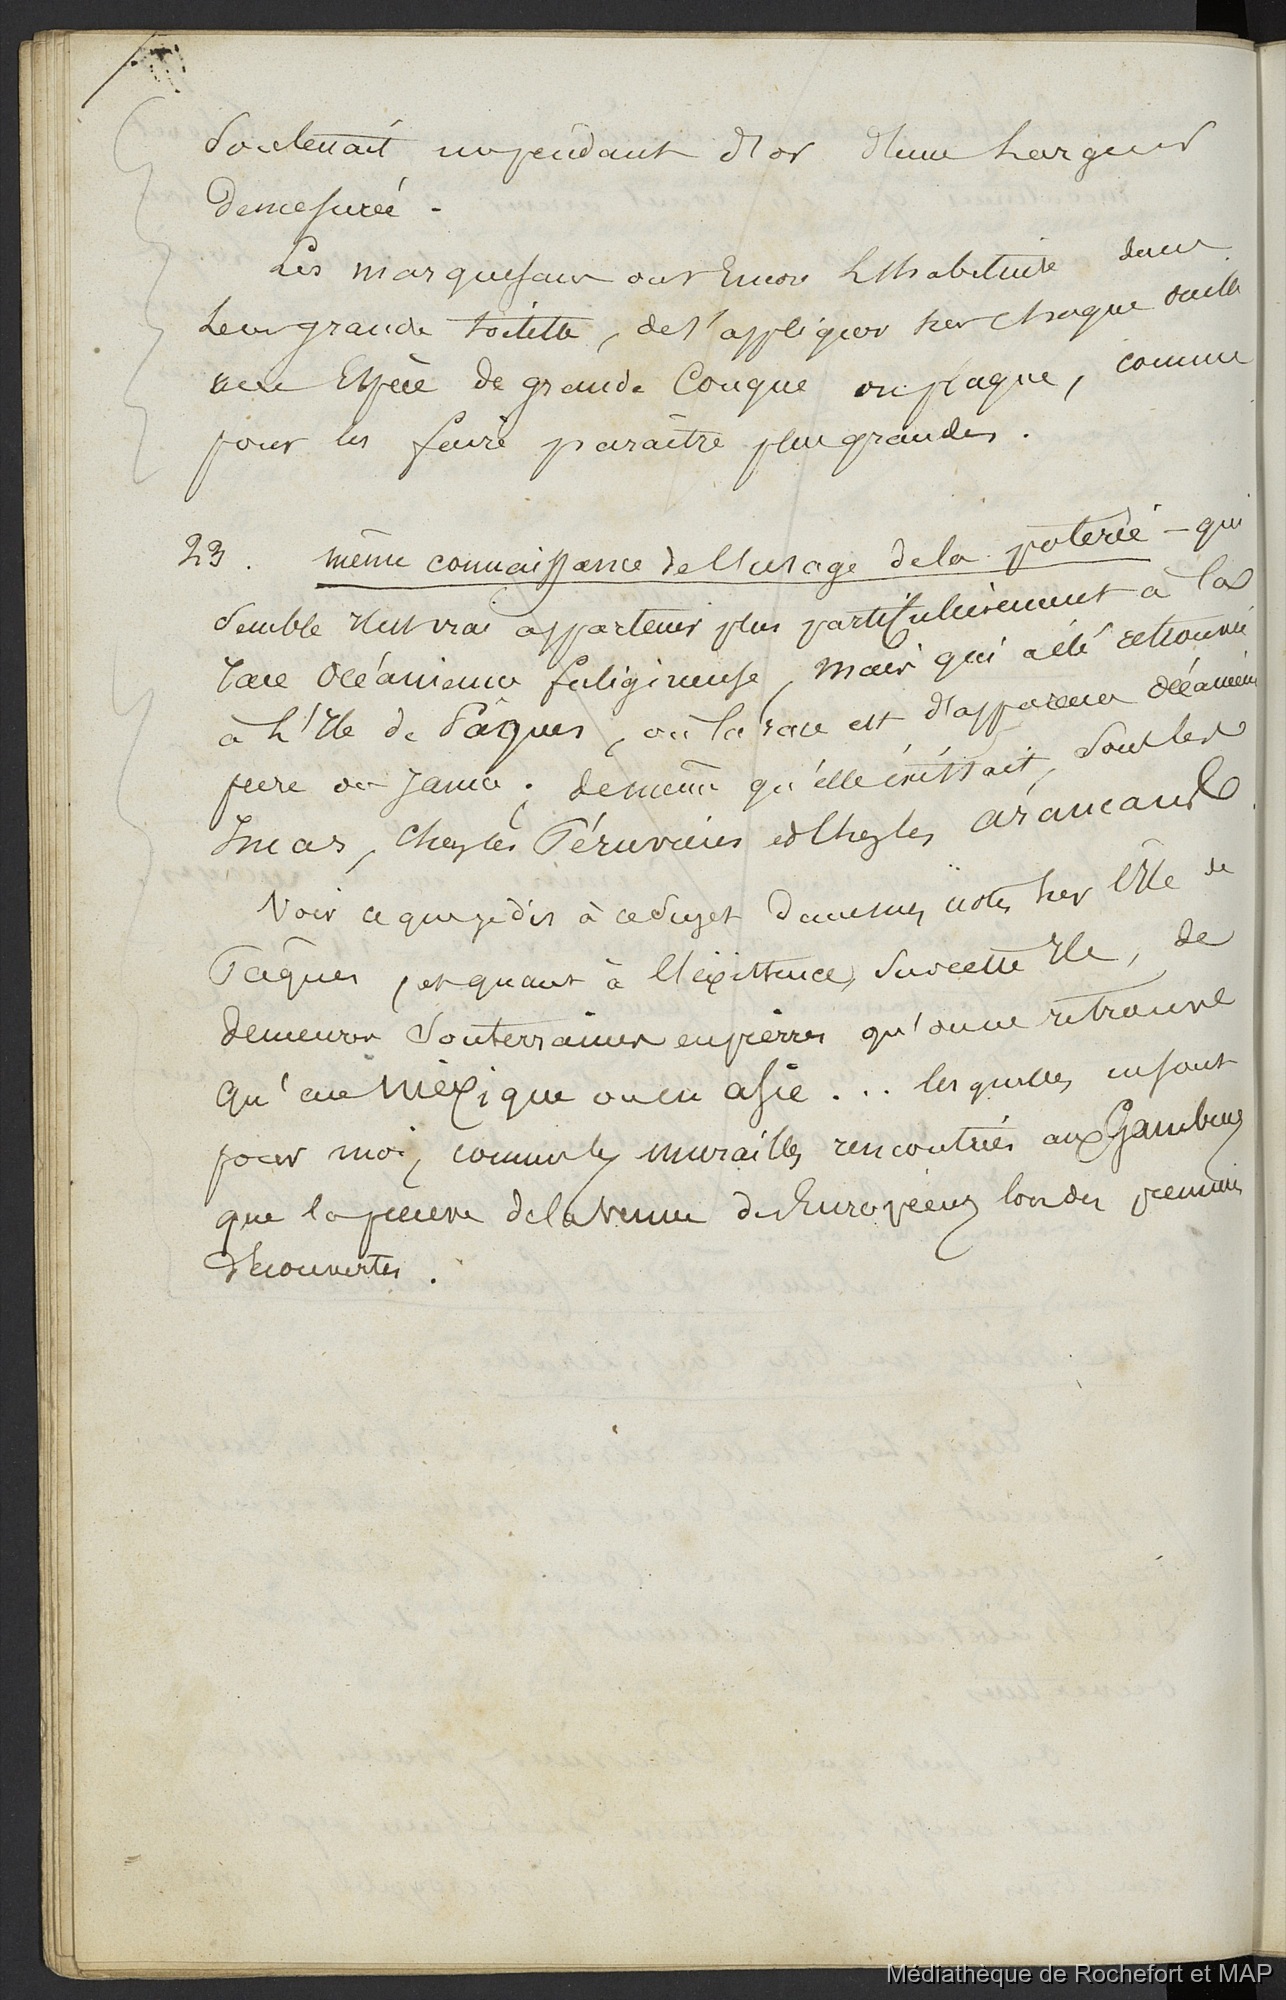 Soutenait un pendant d'or d'une largeur
demesurée.
Les marquesans ont Encore l'habitude dans
leur grande toilette, de s'appliquer sur chaque oreille
une Espèce de grande Conque ou plaque, comme
pour les faire paraître plus grandes.
23. même connaissance de l'usage de la poterie - qui
semble il est vrai appartenir plus particulièrement à la
race Océanienne fuligineuse, mais qui a été retrouvée
à l'Ile de Pâques, où la race est d'apparence Océanienne
pure ou jaune; de même qu'elle éxistait, sous les
Incas, chez les Péruviens et chez les araucans.
Voir ce que je dis à ce sujet dans mes notes sur l'Ile de
Pâques, et quant à l'éxistence, sur cette Ile, de
demeures souterraines en pierres qu'on ne retrouve
qu'au Méxique ou en asie... les quelles ne sont
pour moi, comme les murailles rencontrées aux Gambier
que la preuve de la venue des Européens lors des premières
découvertes.
Médiathèque de Rochefort et MAP